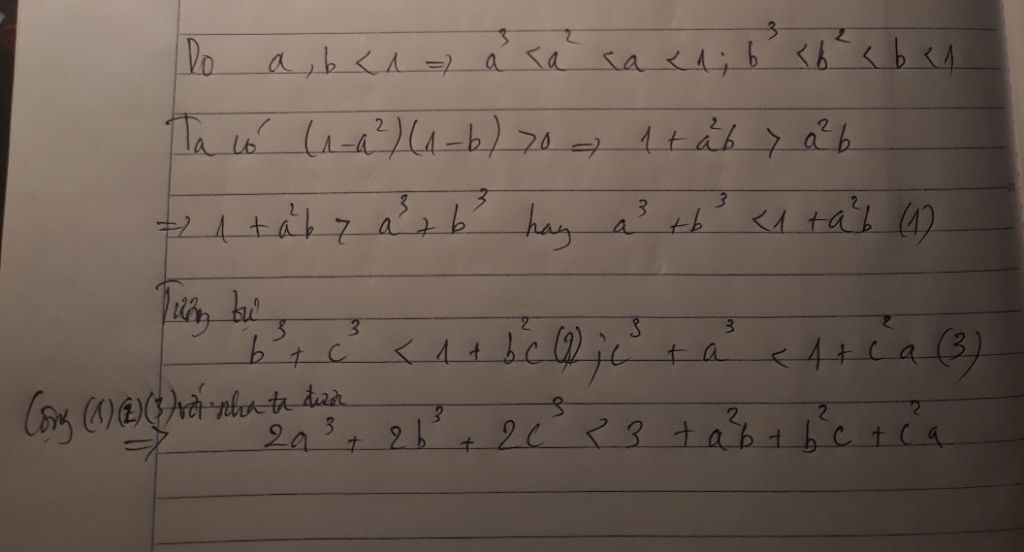 Do a, b < 1 => a³ < a² < a < 1 ; b³ < b² < b < 1
Ta có (1-a²)(1-b) > 0 => 1 + a²b > a²b
=> 1 + a²b > a³ + b³ hay a³ + b³ < 1 + a²b (1)
Tương tự
b³ + c³ < 1 + b²c (2) ; c³ + a³ < 1 + c²a (3)
Cộng (1)(2)(3) với nha ta được
=> 2a³ + 2b³ + 2c³ < 3 + a²b + b²c + c²a